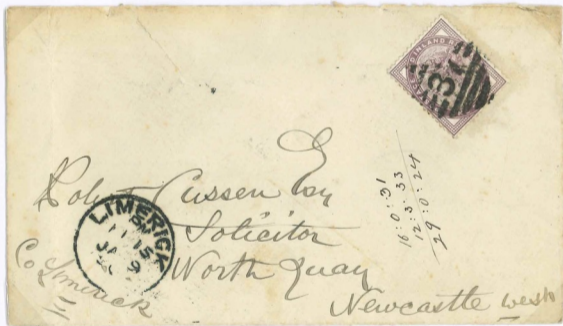 INLAND R
Robert Cussen Esq
Solicitor
North Quay
Newcastle West
Co Limerick
LIMERICK
11 15
JA 9
16:0:31
12:3:33
29:0:24